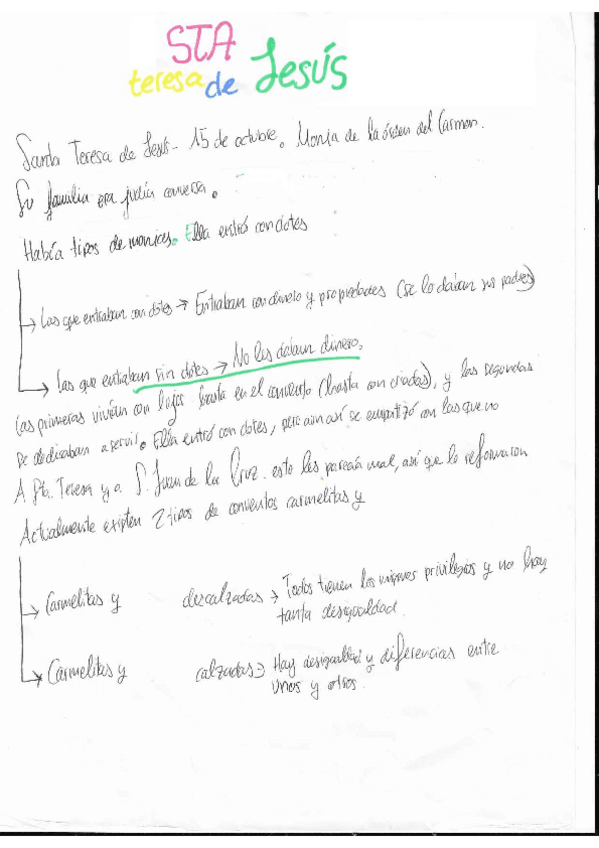 STA
teresa de Jesús
Santa Teresa de Jesús - 15 de octubre. Monja de la órden del Carmen.
Su familia era judía conversa.
Había tipos de monjas. Ella entró con dotes
→ Las que entraban con dotes → Entraban con dinero y propiedades (se lo daban sus padres)
→ Las que entraban sin dotes → No les daban dinero.
Las primeras vivían con lujos hasta en el convento (hasta con criadas), y las segundas
se dedicaban a servir. Ella entró con dotes, pero aún así se empatizó con las que no
A Sta. Teresa y a S. Juan de la Cruz. esto les parecía mal, así que lo reformaron
Actualmente existen 2 tipos de conventos carmelitas y
→ Carmelitas y descalzadas → Todos tienen los mismos privilegios y no hay
tanta desigualdad.
→ Carmelitas y calzadas → Hay desigualdad y diferencias entre
unos y otros.